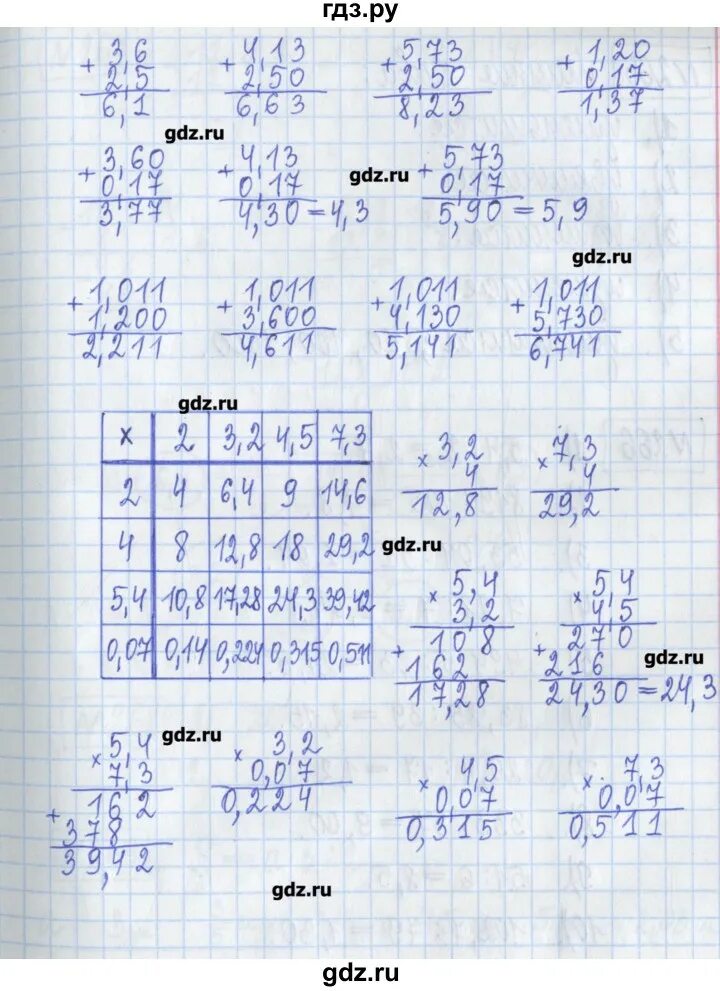 гдз.ру
+ 3,6 + 4,13 + 5,73 + 1,20
2,5 2,50 2,50 0,17
6,1 6,63 8,23 1,37
gdz.ru
+ 3,60 + 4,13 + 5,73
0,17 0,17 0,17
3,77 4,30 = 4,3 5,90 = 5,9
gdz.ru
gdz.ru
+ 1,011 + 1,011 + 1,011 + 1,011
1,200 3,600 4,130 5,730
2,211 4,611 5,141 6,741
gdz.ru
x 2 3,2 4,5 7,3
2 4 6,4 9 14,6
4 8 12,8 18 29,2
5,4 10,8 17,28 24,3 39,42
0,07 0,14 0,224 0,315 0,511
x 3,2 x 7,3
4 4
12,8 29,2
gdz.ru
x 5,4 x 5,4
3,2 4,5
+ 108 + 270
162 216
17,28 24,30 = 24,3
gdz.ru
gdz.ru
x 5,4 x 3,2 x 4,5 x 7,3
7,3 0,07 0,07 0,07
+ 162 0,224 0,315 0,511
378
39,42
gdz.ru
gdz.ru